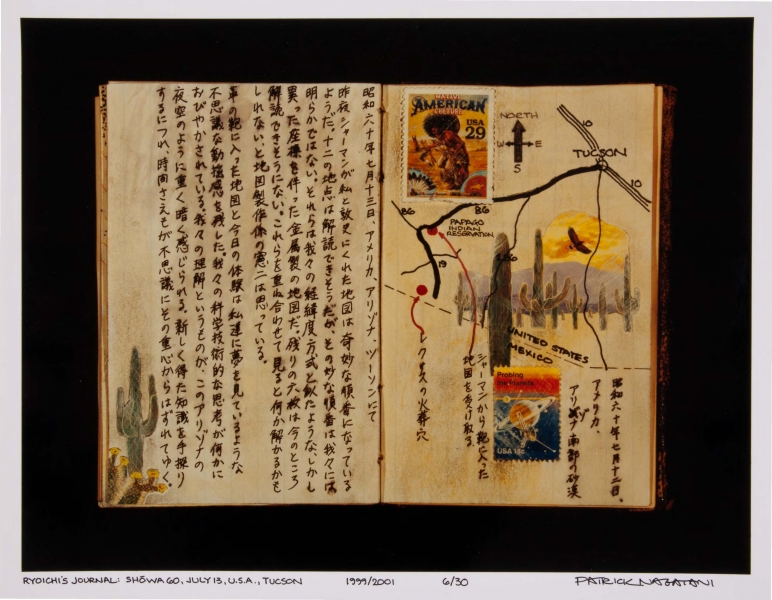 昭和六十年七月十三日、アメリカ、アリゾナ、ツーソンにて
昨夜シャーマンが私と敦史にくれた地図は奇妙な順番になっている
ようだ。十二の地点は解読できそうだが、その妙な順番は我々には
明らかではない。それらは我々の経緯度方式と似たような、しかし
異った座標を伴った金属製の地図だ。残りの六枚は今のところ
解読できそうにない。これらを重ね合わせて見ると何か解かるかも
しれない、と地図製作係の憲二は思っている。
革の鞄に入った地図と今日の体験は私達に夢を見ているような
不思議な動揺感を残した。我々の科学技術的な思考が何かに
おびやかされている。我々の理解というものが、このアリゾナの
夜空のように重く暗く感じられる。新しく得た知識を手探り
するにつれ、時間さえもが不思議にその重心からはずれてゆく。
NATIVE
AMERICAN
CULTURE
USA
29
NORTH
W
E
S
10
TUCSON
10
86
86
PAPAGO
INDIAN
RESERVATION
19
UNITED STATES
MEXICO
昭和六十年七月十二日。
アメリカ、
アリゾナ南部の砂漠
シャーマンから鞄に入った
地図を受け取る。
レクサスの火葬穴
Probing
the Planets
USA 18c
RYOICHI'S JOURNAL: SHŌWA 60, JULY 13, U.S.A., TUCSON
1999/2001
6/30
PATRICK NAGATANI